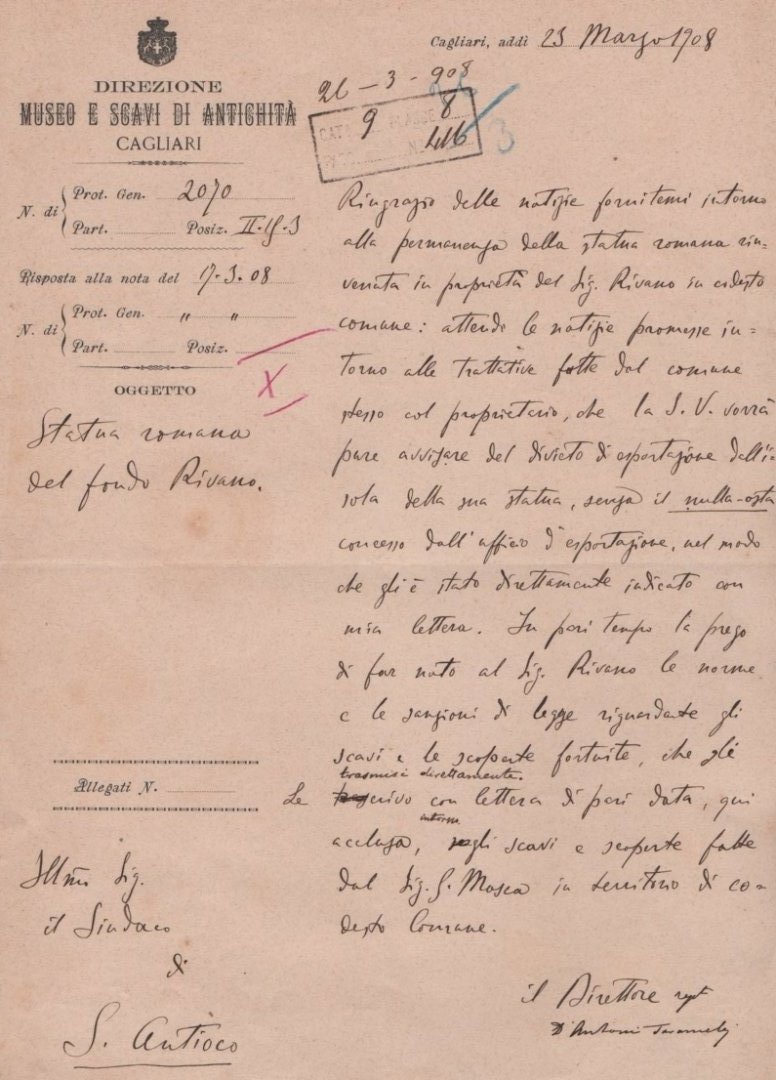 Cagliari, addì 23 Marzo 1908
DIREZIONE
MUSEO E SCAVI DI ANTICHITÀ
CAGLIARI
26-3-908
9 8
416
3
N. di Prot. Gen. 2070
Part. Posiz. II.15.3
Risposta alla nota del 17.3.08
N. di Prot. Gen. " "
Part. Posiz.
X
OGGETTO
Statua romana
del fondo Rivano.
Ringrazio delle notizie fornitemi intorno
alla permanenza della statua romana rin=
venuta in proprietà del Sig. Rivano in codesto
comune: attendo le notizie promesse in=
torno alle trattative fatte dal comune
stesso col proprietario, che la S. V. vorrà
pure avvisare del divieto di esportazione dall'i=
sola della sua statua, senza il nulla-osta
concesso dall'ufficio d'esportazione, nel modo
che gli è stato direttamente indicato con
mia lettera. In pari tempo la prego
di far noto al Sig. Rivano le norme
e le sanzioni di legge riguardante gli
scavi e le scoperte fortuite, che gli
trasmisi direttamente.
Allegati N.
Le scrivo con lettera di pari data, qui
intorno
acclusa, agli scavi e scoperte fatte
dal Sig. G. Mosca in territorio di co=
desto Comune.
Illmo Sig.
il Sindaco
di
S. Antioco
il Direttore
D. Antonio Taramelli